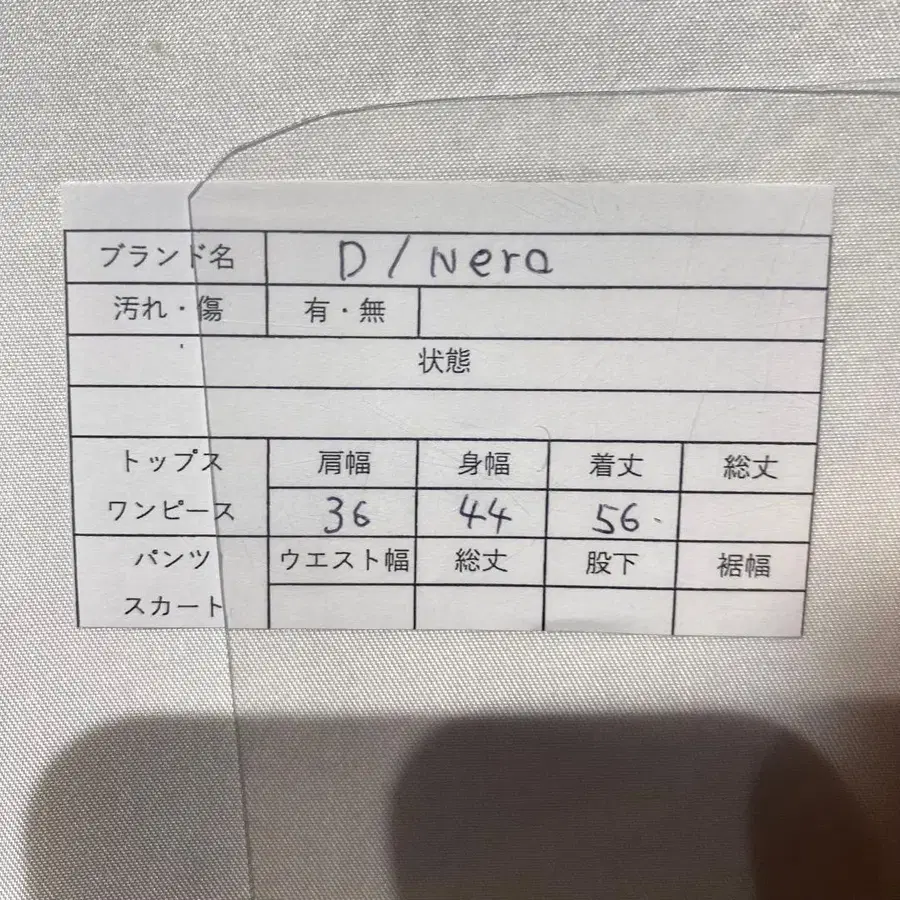 ブランド名 D / Nero
汚れ・傷 有・無
状態
トップス 肩幅 身幅 着丈 総丈
ワンピース 36 44 56
パンツ ウエスト幅 総丈 股下 裾幅
スカート